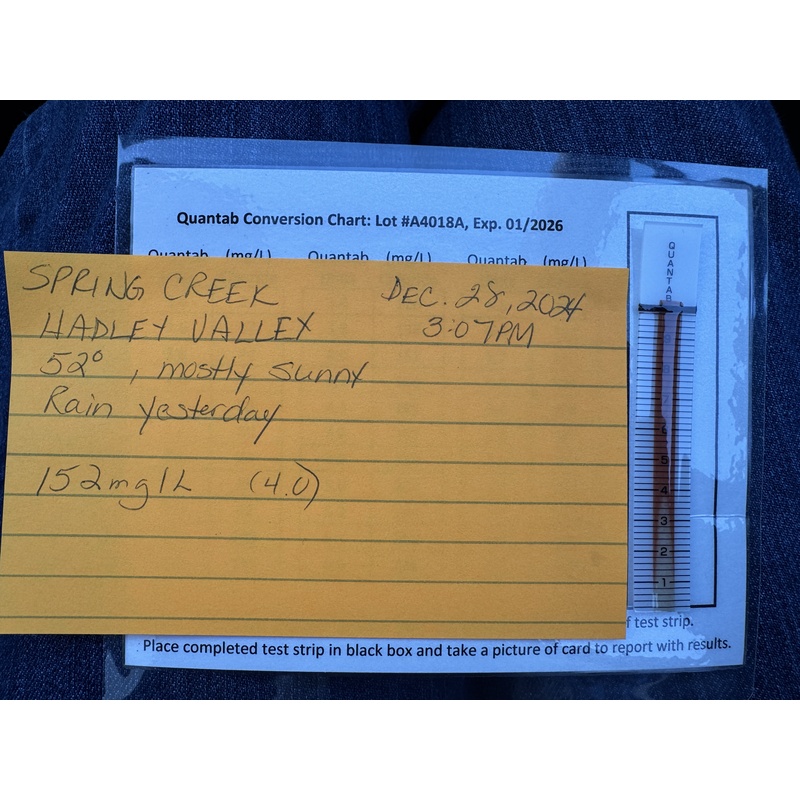 Quantab Conversion Chart: Lot #A4018A, Exp. 01/2026
Quantab (mg/L) Quantab (mg/L) Quantab (mg/L)
SPRING CREEK DEC. 28, 2024
HADLEY VALLEY 3:07PM
52° , mostly sunny
Rain yesterday
152mg/L (4.0)
QUANTAB
8
7
6
5
4
3
2
1
f test strip.
Place completed test strip in black box and take a picture of card to report with results.